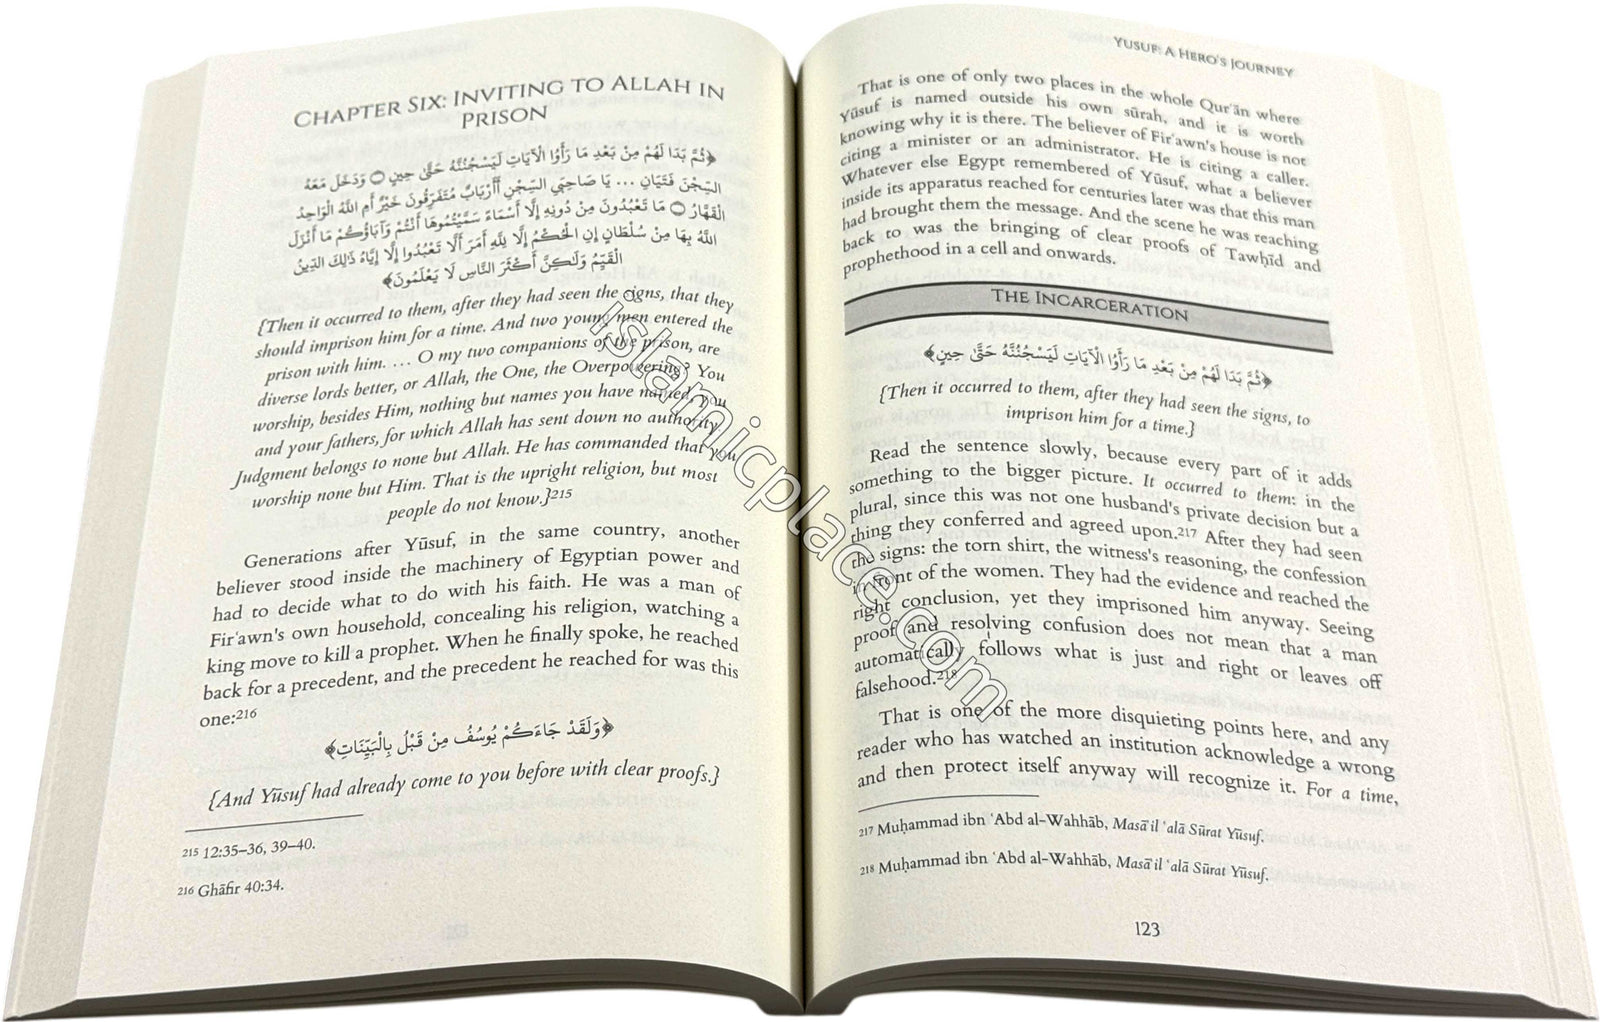 CHAPTER SIX: INVITING TO ALLAH IN
PRISON
﴿ثُمَّ بَدَا لَهُمْ مِنْ بَعْدِ مَا رَأَوُا الْآيَاتِ لَيَسْجُنُنَّهُ حَتَّىٰ حِينٍ ۝ وَدَخَلَ مَعَهُ
السِّجْنَ فَتَيَانِ ... يَا صَاحِبَيِ السِّجْنِ أَأَرْبَابٌ مُتَفَرِّقُونَ خَيْرٌ أَمِ اللَّهُ الْوَاحِدُ
الْقَهَّارُ ۝ مَا تَعْبُدُونَ مِنْ دُونِهِ إِلَّا أَسْمَاءً سَمَّيْتُمُوهَا أَنْتُمْ وَآبَاؤُكُمْ مَا أَنْزَلَ
اللَّهُ بِهَا مِنْ سُلْطَانٍ إِنِ الْحُكْمُ إِلَّا لِلَّهِ أَمَرَ أَلَّا تَعْبُدُوا إِلَّا إِيَّاهُ ذَٰلِكَ الدِّينُ
الْقَيِّمُ وَلَٰكِنَّ أَكْثَرَ النَّاسِ لَا يَعْلَمُونَ﴾
{Then it occurred to them, after they had seen the signs, that they
should imprison him for a time. And two young men entered the
prison with him. … O my two companions of the prison, are
diverse lords better, or Allah, the One, the Overpowering? You
worship, besides Him, nothing but names you have named, you
and your fathers, for which Allah has sent down no authority.
Judgment belongs to none but Allah. He has commanded that you
worship none but Him. That is the upright religion, but most
people do not know.}215
Generations after Yūsuf, in the same country, another
believer stood inside the machinery of Egyptian power and
had to decide what to do with his faith. He was a man of
Firʿawn's own household, concealing his religion, watching a
king move to kill a prophet. When he finally spoke, he reached
back for a precedent, and the precedent he reached for was this
one:216
﴿وَلَقَدْ جَاءَكُمْ يُوسُفُ مِنْ قَبْلُ بِالْبَيِّنَاتِ﴾
{And Yūsuf had already come to you before with clear proofs.}
215 12:35–36, 39–40.
216 Ghāfir 40:34.
YUSUF: A HERO'S JOURNEY
That is one of only two places in the whole Qurʾān where
Yūsuf is named outside his own sūrah, and it is worth
knowing why it is there. The believer of Firʿawn's house is not
citing a minister or an administrator. He is citing a caller.
Whatever else Egypt remembered of Yūsuf, what a believer
inside its apparatus reached for centuries later was that this man
had brought them the message. And the scene he was reaching
back to was the bringing of clear proofs of Tawḥīd and
prophethood in a cell and onwards.
THE INCARCERATION
﴿ثُمَّ بَدَا لَهُمْ مِنْ بَعْدِ مَا رَأَوُا الْآيَاتِ لَيَسْجُنُنَّهُ حَتَّىٰ حِينٍ﴾
{Then it occurred to them, after they had seen the signs, to
imprison him for a time.}
Read the sentence slowly, because every part of it adds
something to the bigger picture. It occurred to them: in the
plural, since this was not one husband's private decision but a
thing they conferred and agreed upon.217 After they had seen
the signs: the torn shirt, the witness's reasoning, the confession
in front of the women. They had the evidence and reached the
right conclusion, yet they imprisoned him anyway. Seeing
proof and resolving confusion does not mean that a man
automatically follows what is just and right or leaves off
falsehood.218
That is one of the more disquieting points here, and any
reader who has watched an institution acknowledge a wrong
and then protect itself anyway will recognize it. For a time,
217 Muḥammad ibn ʿAbd al-Wahhāb, Masāʾil ʿalā Sūrat Yūsuf.
218 Muḥammad ibn ʿAbd al-Wahhāb, Masāʾil ʿalā Sūrat Yūsuf.
123
islamicplace.com